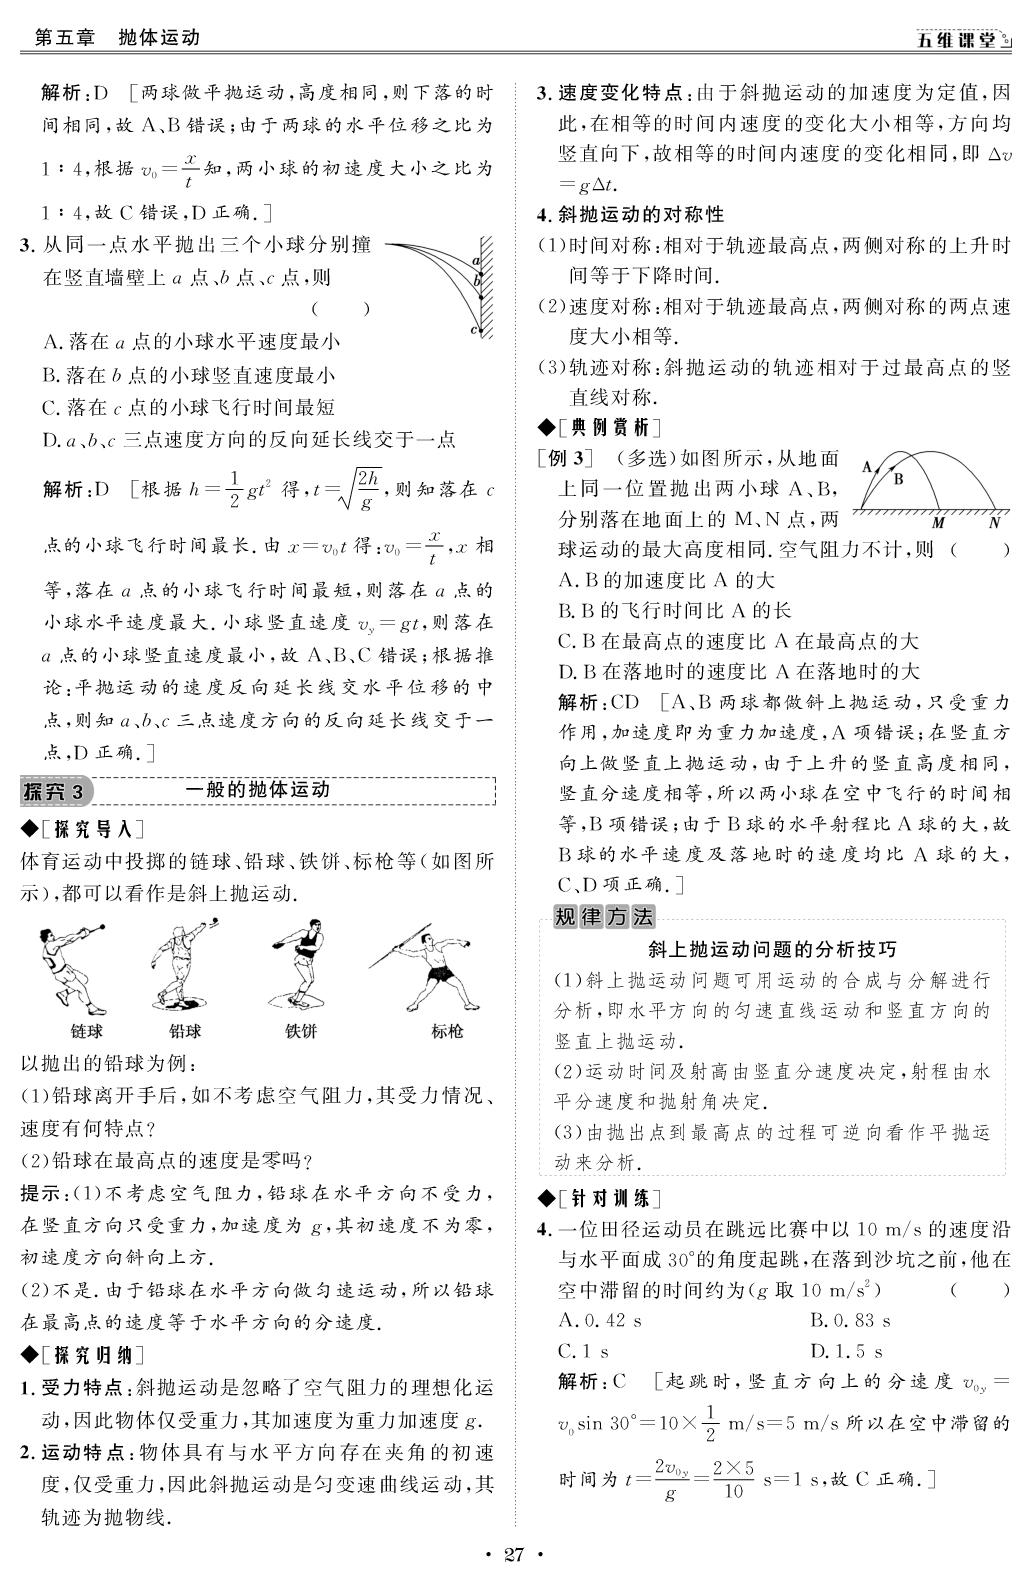 第五章　抛体运动
五维课堂
解析:D　[两球做平抛运动,高度相同,则下落的时
间相同,故 A、B 错误;由于两球的水平位移之比为
1∶4,根据 v₀=x/t知,两小球的初速度大小之比为
1∶4,故 C 错误,D 正确.]
3. 从同一点水平抛出三个小球分别撞
在竖直墙壁上 a 点、b 点、c 点,则
(　　)
a
b
c
A. 落在 a 点的小球水平速度最小
B. 落在 b 点的小球竖直速度最小
C. 落在 c 点的小球飞行时间最短
D. a、b、c 三点速度方向的反向延长线交于一点
解析:D　[根据 h=1/2gt² 得,t=√(2h/g),则知落在 c
点的小球飞行时间最长.由 x=v₀t 得:v₀=x/t,x 相
等,落在 a 点的小球飞行时间最短,则落在 a 点的
小球水平速度最大.小球竖直速度 v_y=gt,则落在
a 点的小球竖直速度最小,故 A、B、C 错误;根据推
论:平抛运动的速度反向延长线交水平位移的中
点,则知 a、b、c 三点速度方向的反向延长线交于一
点,D 正确.]
探究 3　一般的抛体运动
◆[探究导入]
体育运动中投掷的链球、铅球、铁饼、标枪等(如图所
示),都可以看作是斜上抛运动.
链球　铅球　铁饼　标枪
以抛出的铅球为例:
(1)铅球离开手后,如不考虑空气阻力,其受力情况、
速度有何特点?
(2)铅球在最高点的速度是零吗?
提示:(1)不考虑空气阻力,铅球在水平方向不受力,
在竖直方向只受重力,加速度为 g,其初速度不为零,
初速度方向斜向上方.
(2)不是.由于铅球在水平方向做匀速运动,所以铅球
在最高点的速度等于水平方向的分速度.
◆[探究归纳]
1. 受力特点:斜抛运动是忽略了空气阻力的理想化运
动,因此物体仅受重力,其加速度为重力加速度 g.
2. 运动特点:物体具有与水平方向存在夹角的初速
度,仅受重力,因此斜抛运动是匀变速曲线运动,其
轨迹为抛物线.
3. 速度变化特点:由于斜抛运动的加速度为定值,因
此,在相等的时间内速度的变化大小相等,方向均
竖直向下,故相等的时间内速度的变化相同,即 Δv
=gΔt.
4. 斜抛运动的对称性
(1)时间对称:相对于轨迹最高点,两侧对称的上升时
间等于下降时间.
(2)速度对称:相对于轨迹最高点,两侧对称的两点速
度大小相等.
(3)轨迹对称:斜抛运动的轨迹相对于过最高点的竖
直线对称.
◆[典例赏析]
[例 3]　(多选)如图所示,从地面
上同一位置抛出两小球 A、B,
分别落在地面上的 M、N 点,两
球运动的最大高度相同.空气阻力不计,则　(　　)
A
B
M
N
A. B 的加速度比 A 的大
B. B 的飞行时间比 A 的长
C. B 在最高点的速度比 A 在最高点的大
D. B 在落地时的速度比 A 在落地时的大
解析:CD　[A、B 两球都做斜上抛运动,只受重力
作用,加速度即为重力加速度,A 项错误;在竖直方
向上做竖直上抛运动,由于上升的竖直高度相同,
竖直分速度相等,所以两小球在空中飞行的时间相
等,B 项错误;由于 B 球的水平射程比 A 球的大,故
B 球的水平速度及落地时的速度均比 A 球的大,
C、D 项正确.]
规律方法
斜上抛运动问题的分析技巧
(1)斜上抛运动问题可用运动的合成与分解进行
分析,即水平方向的匀速直线运动和竖直方向的
竖直上抛运动.
(2)运动时间及射高由竖直分速度决定,射程由水
平分速度和抛射角决定.
(3)由抛出点到最高点的过程可逆向看作平抛运
动来分析.
◆[针对训练]
4. 一位田径运动员在跳远比赛中以 10 m/s 的速度沿
与水平面成 30°的角度起跳,在落到沙坑之前,他在
空中滞留的时间约为(g 取 10 m/s²)　(　　)
A. 0.42 s　B. 0.83 s
C. 1 s　D. 1.5 s
解析:C　[起跳时,竖直方向上的分速度 v₀y=
v₀sin 30°=10×1/2 m/s=5 m/s 所以在空中滞留的
时间为 t=2v₀y/g=2×5/10 s=1 s,故 C 正确.]
• 27 •